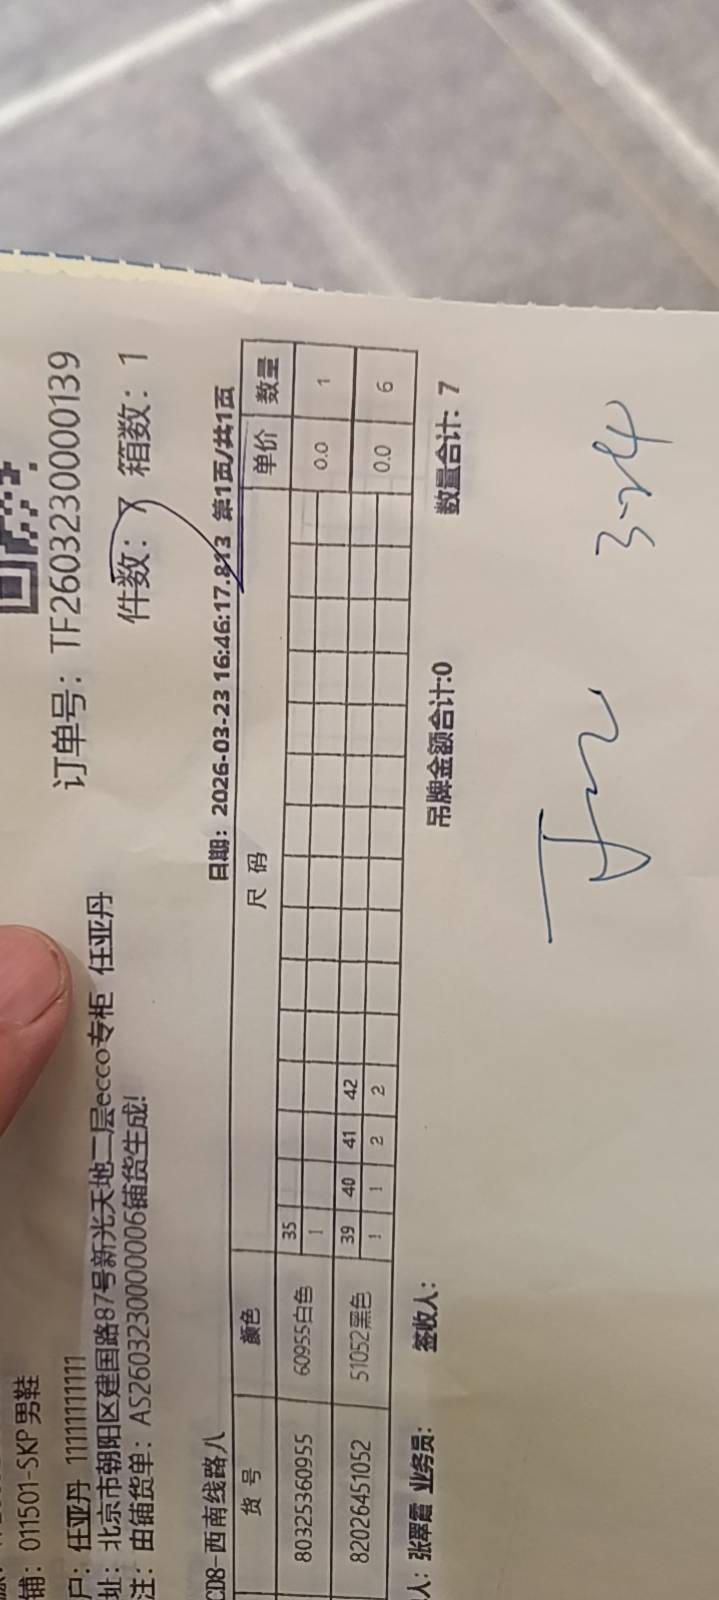 订单号：TF2603230000139
件数：7 箱数：1
铺：011501-SKP 男鞋
户：任亚丹 11111111111
址：北京市朝阳区建国路87号新光天地二层ecco专柜 任亚丹
注：由铺货单：AS2603230000006铺货生成!
CD8-西南线路八 日期：2026-03-23 16:46:17.813 第1页/共1页
货号 颜色 尺码 单价 数量
80325360955 60955白色 35 0.0 1
1
82026451052 51052黑色 39 40 41 42 0.0 6
1 1 2 2
人：张翠霞 业务员： 签收人： 吊牌金额合计:0 数量合计：7
3-24